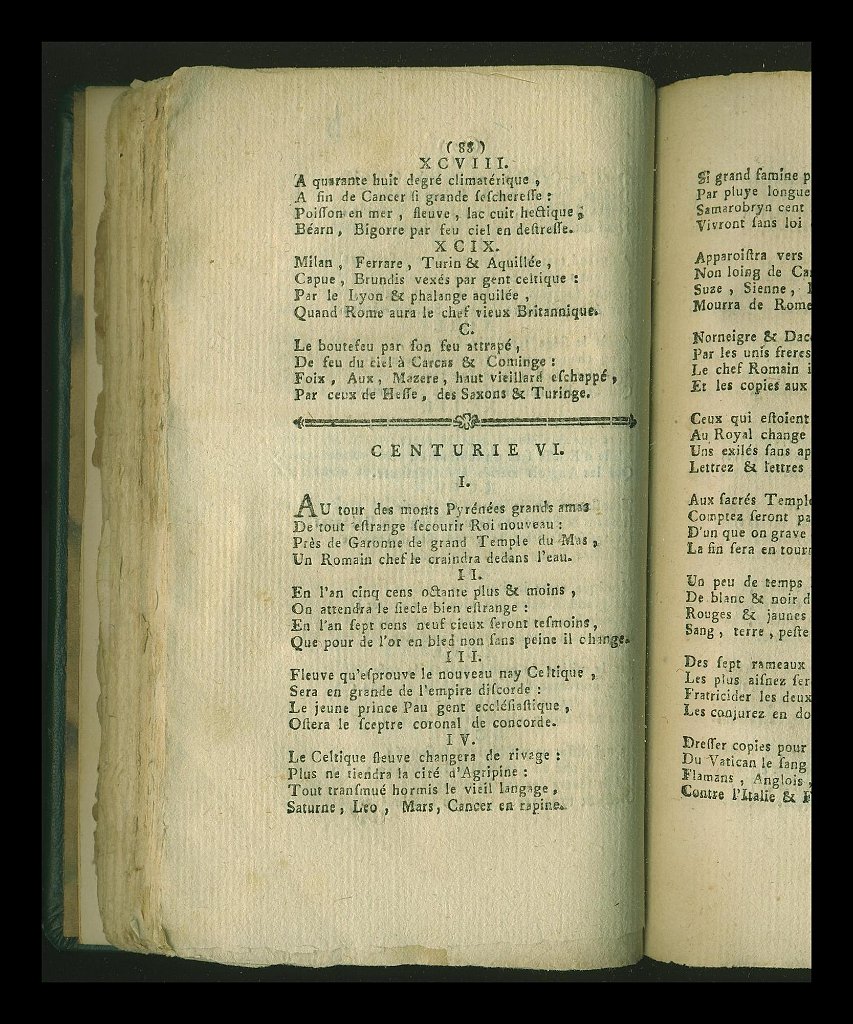 (88)
XCVIII.
A quarante huit degré climatérique ,
A fin de Cancer ſi grande ſeſchereſſe :
Poiſſon en mer , fleuve , lac cuit hectique ;
Béarn, Bigorre par feu ciel en deſtreſſe.
XCIX.
Milan , Ferrare, Turin & Aquillée ,
Capue , Brundis vexés par gent celtique :
Par le Lyon & phalange aquilée ,
Quand Rome aura le chef vieux Britannique.
C.
Le boutefeu par ſon feu attrapé ,
De feu du ciel à Carcas & Cominge :
Foix , Aux , Mazere , haut vieillard eſchappé ,
Par ceux de Heſſe , des Saxons & Turinge.
CENTURIE VI.
I.
AU tour des monts Pyrénées grands amas
De tout eſtrange ſecourir Roi nouveau :
Près de Garonne de grand Temple du Mas ,
Un Romain chef le craindra dedans l'eau.
II.
En l'an cinq cens octante plus & moins ,
On attendra le ſiecle bien eſtrange :
En l'an ſept cens neuf cieux ſeront teſmoins ,
Que pour de l'or en bled non ſans peine il change.
III.
Fleuve qu'eſprouve le nouveau nay Celtique ,
Sera en grande de l'empire diſcorde :
Le jeune prince Pau gent eccléſiaſtique ,
Oſtera le ſceptre coronal de concorde.
IV.
Le Celtique fleuve changera de rivage :
Plus ne tiendra la cité d'Agripine :
Tout tranſmué hormis le vieil langage ,
Saturne , Leo , Mars, Cancer en rapine.
Si grand famine p
Par pluye longue
Samarobryn cent
Vivront ſans loi
Apparoiſtra vers
Non loing de Ca
Suze , Sienne ,
Mourra de Rome
Norneigre & Dac
Par les unis freres
Le chef Romain i
Et les copies aux
Ceux qui eſtoient
Au Royal change
Uns exilés ſans ap
Lettrez & lettres
Aux ſacrés Temple
Comptez ſeront pa
D'un que on grave
La fin ſera en tour
Un peu de temps
De blanc & noir d
Rouges & jaunes
Sang , terre , peſte
Des ſept rameaux
Les plus aiſnez ſer
Fratricider les deux
Les conjurez en do
Dreſſer copies pour
Du Vatican le ſang
Flamans , Anglois ,
Contre l'Italie &